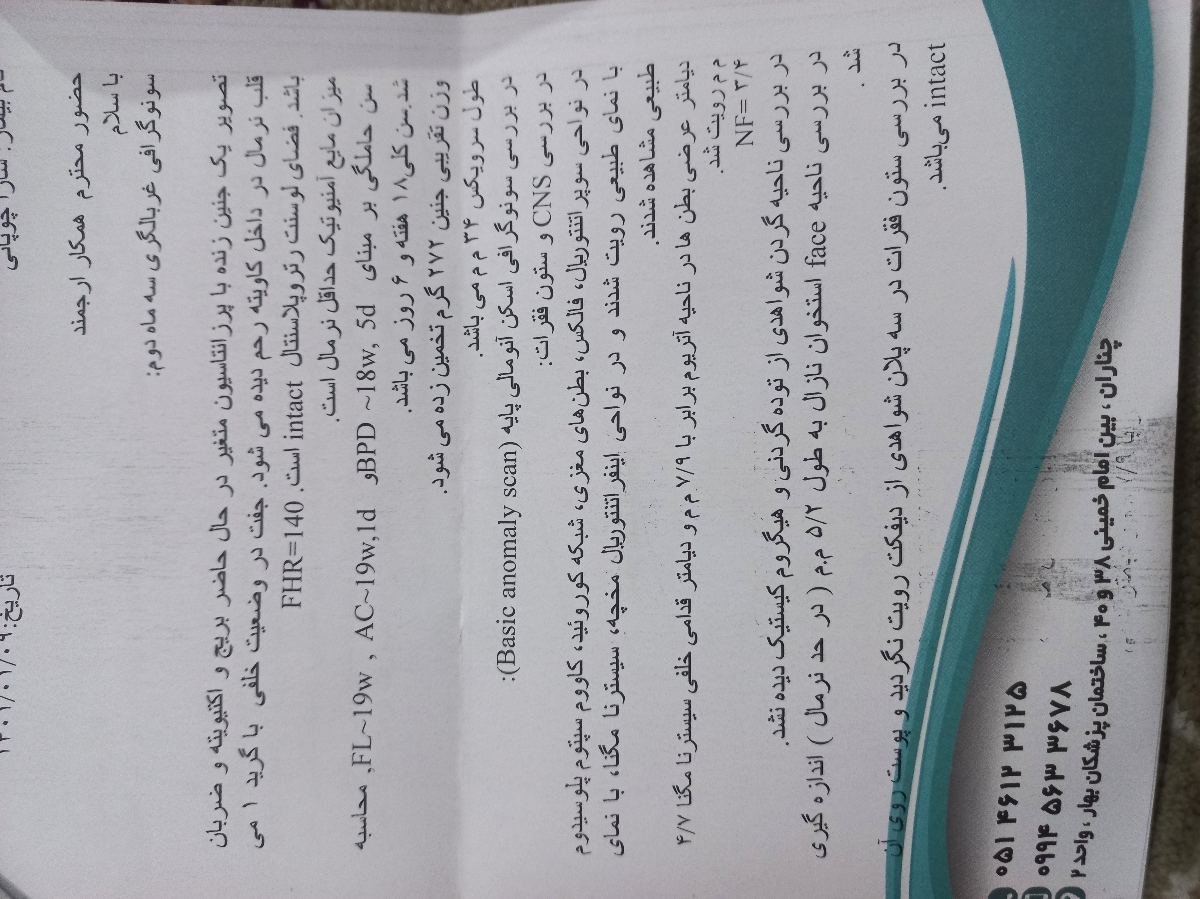 نام بیمار: سارا چوپانی
تاریخ: ۱۴۰۲/۰۱/۰۹
حضور محترم همکار ارجمند
با سلام
سونوگرافی غربالگری سه ماه دوم:
تصویر یک جنین زنده با پرزانتاسیون متغیر در حال حاضر بریچ و اکتیویته و ضربان
قلب نرمال در داخل کاویته رحم دیده می شود. جفت در وضعیت خلفی با گرید ۱ می
باشد. فضای لوسنت رتروپلاسنتال intact است. FHR=140
میزان مایع آمنیوتیک حداقل نرمال است.
سن حاملگی بر مبنای BPD ~18w, 5dو FL~19w , AC~19w,1d, محاسبه
شد.سن کلی۱۸ هفته و ۶ روز می باشد.
وزن تقریبی جنین ۲۷۲ گرم تخمین زده می شود.
طول سرویکس ۳۴ م م می باشد.
در بررسی سونوگرافی اسکن آنومالی پایه (Basic anomaly scan):
در بررسی CNS و ستون فقرات:
در نواحی سوپراتنتوریال، فالکس، بطن‌های مغزی، شبکه کوروئید، کاووم سپتوم پلوسیدوم
با نمای طبیعی رویت شدند و در نواحی اینفراتنتوریال مخچه، سیسترنا مگنا، با نمای
طبیعی مشاهده شدند.
دیامتر عرضی بطن ها در ناحیه آتریوم برابر با ۷/۹ م م و دیامتر قدامی خلفی سیسترنا مگنا ۴/۷
م م رویت شد.
NF= ۳/۴
در بررسی ناحیه گردن شواهدی از توده گردنی و هیگروم کیستیک دیده نشد.
در بررسی ناحیه face استخوان نازال به طول ۵/۲ م.م ( در حد نرمال ) اندازه گیری
شد .
در بررسی ستون فقرات در سه پلان شواهدی از دیفکت رویت نگردید و پوست روی آن
intact می‌باشد.
۰۵۱ ۴۶۱۲ ۳۱۲۵
۰۹۹۴ ۵۶۳ ۳۶۷۸
چناران ، بین امام خمینی ۳۸ و ۴۰ ، ساختمان پزشکان بهار ، واحد ۲